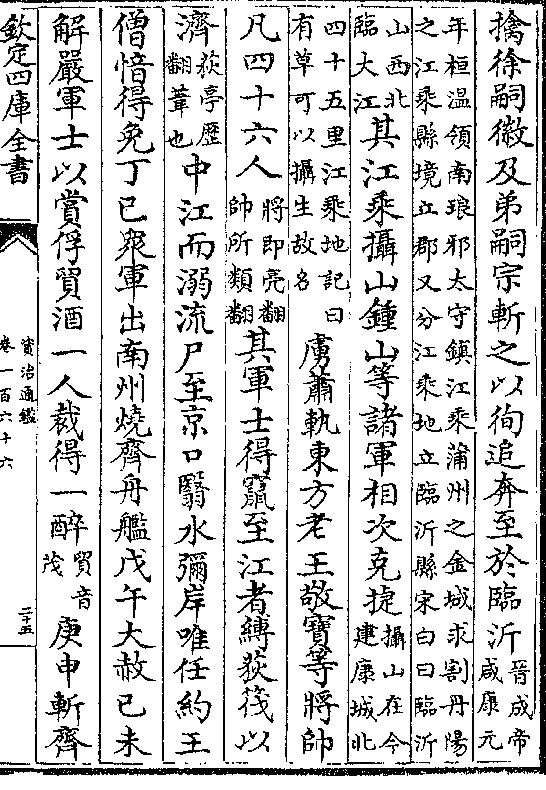 擒徐嗣徽及弟嗣宗斬之以徇追奔至於臨沂晉成帝咸康元
年桓溫領南琅邪太守鎮江乘蒲州之金城求割丹陽
之江乘縣境立郡又分江乘地立臨沂縣宋白曰臨沂
山西北臨大江其江乘攝山鍾山等諸軍相次克捷攝山在今建康城北
四十五里江乘地記曰有草可以攝生故名虜蕭軌東方老王敬寶等將帥
凡四十六人將即亮翻帥所類翻其軍士得竄至江者縛荻筏以
濟荻亭歷翻葦也中江而溺流尸至京口翳水彌岸唯任約王
僧愔得免丁已衆軍出南州燒齊舟艦戊午大赦已未
解嚴軍士以賞俘貿酒一人裁得一醉貿音茂庚申斬齊
欽定四庫全書
資治通鑑
卷一百六十六
二十五